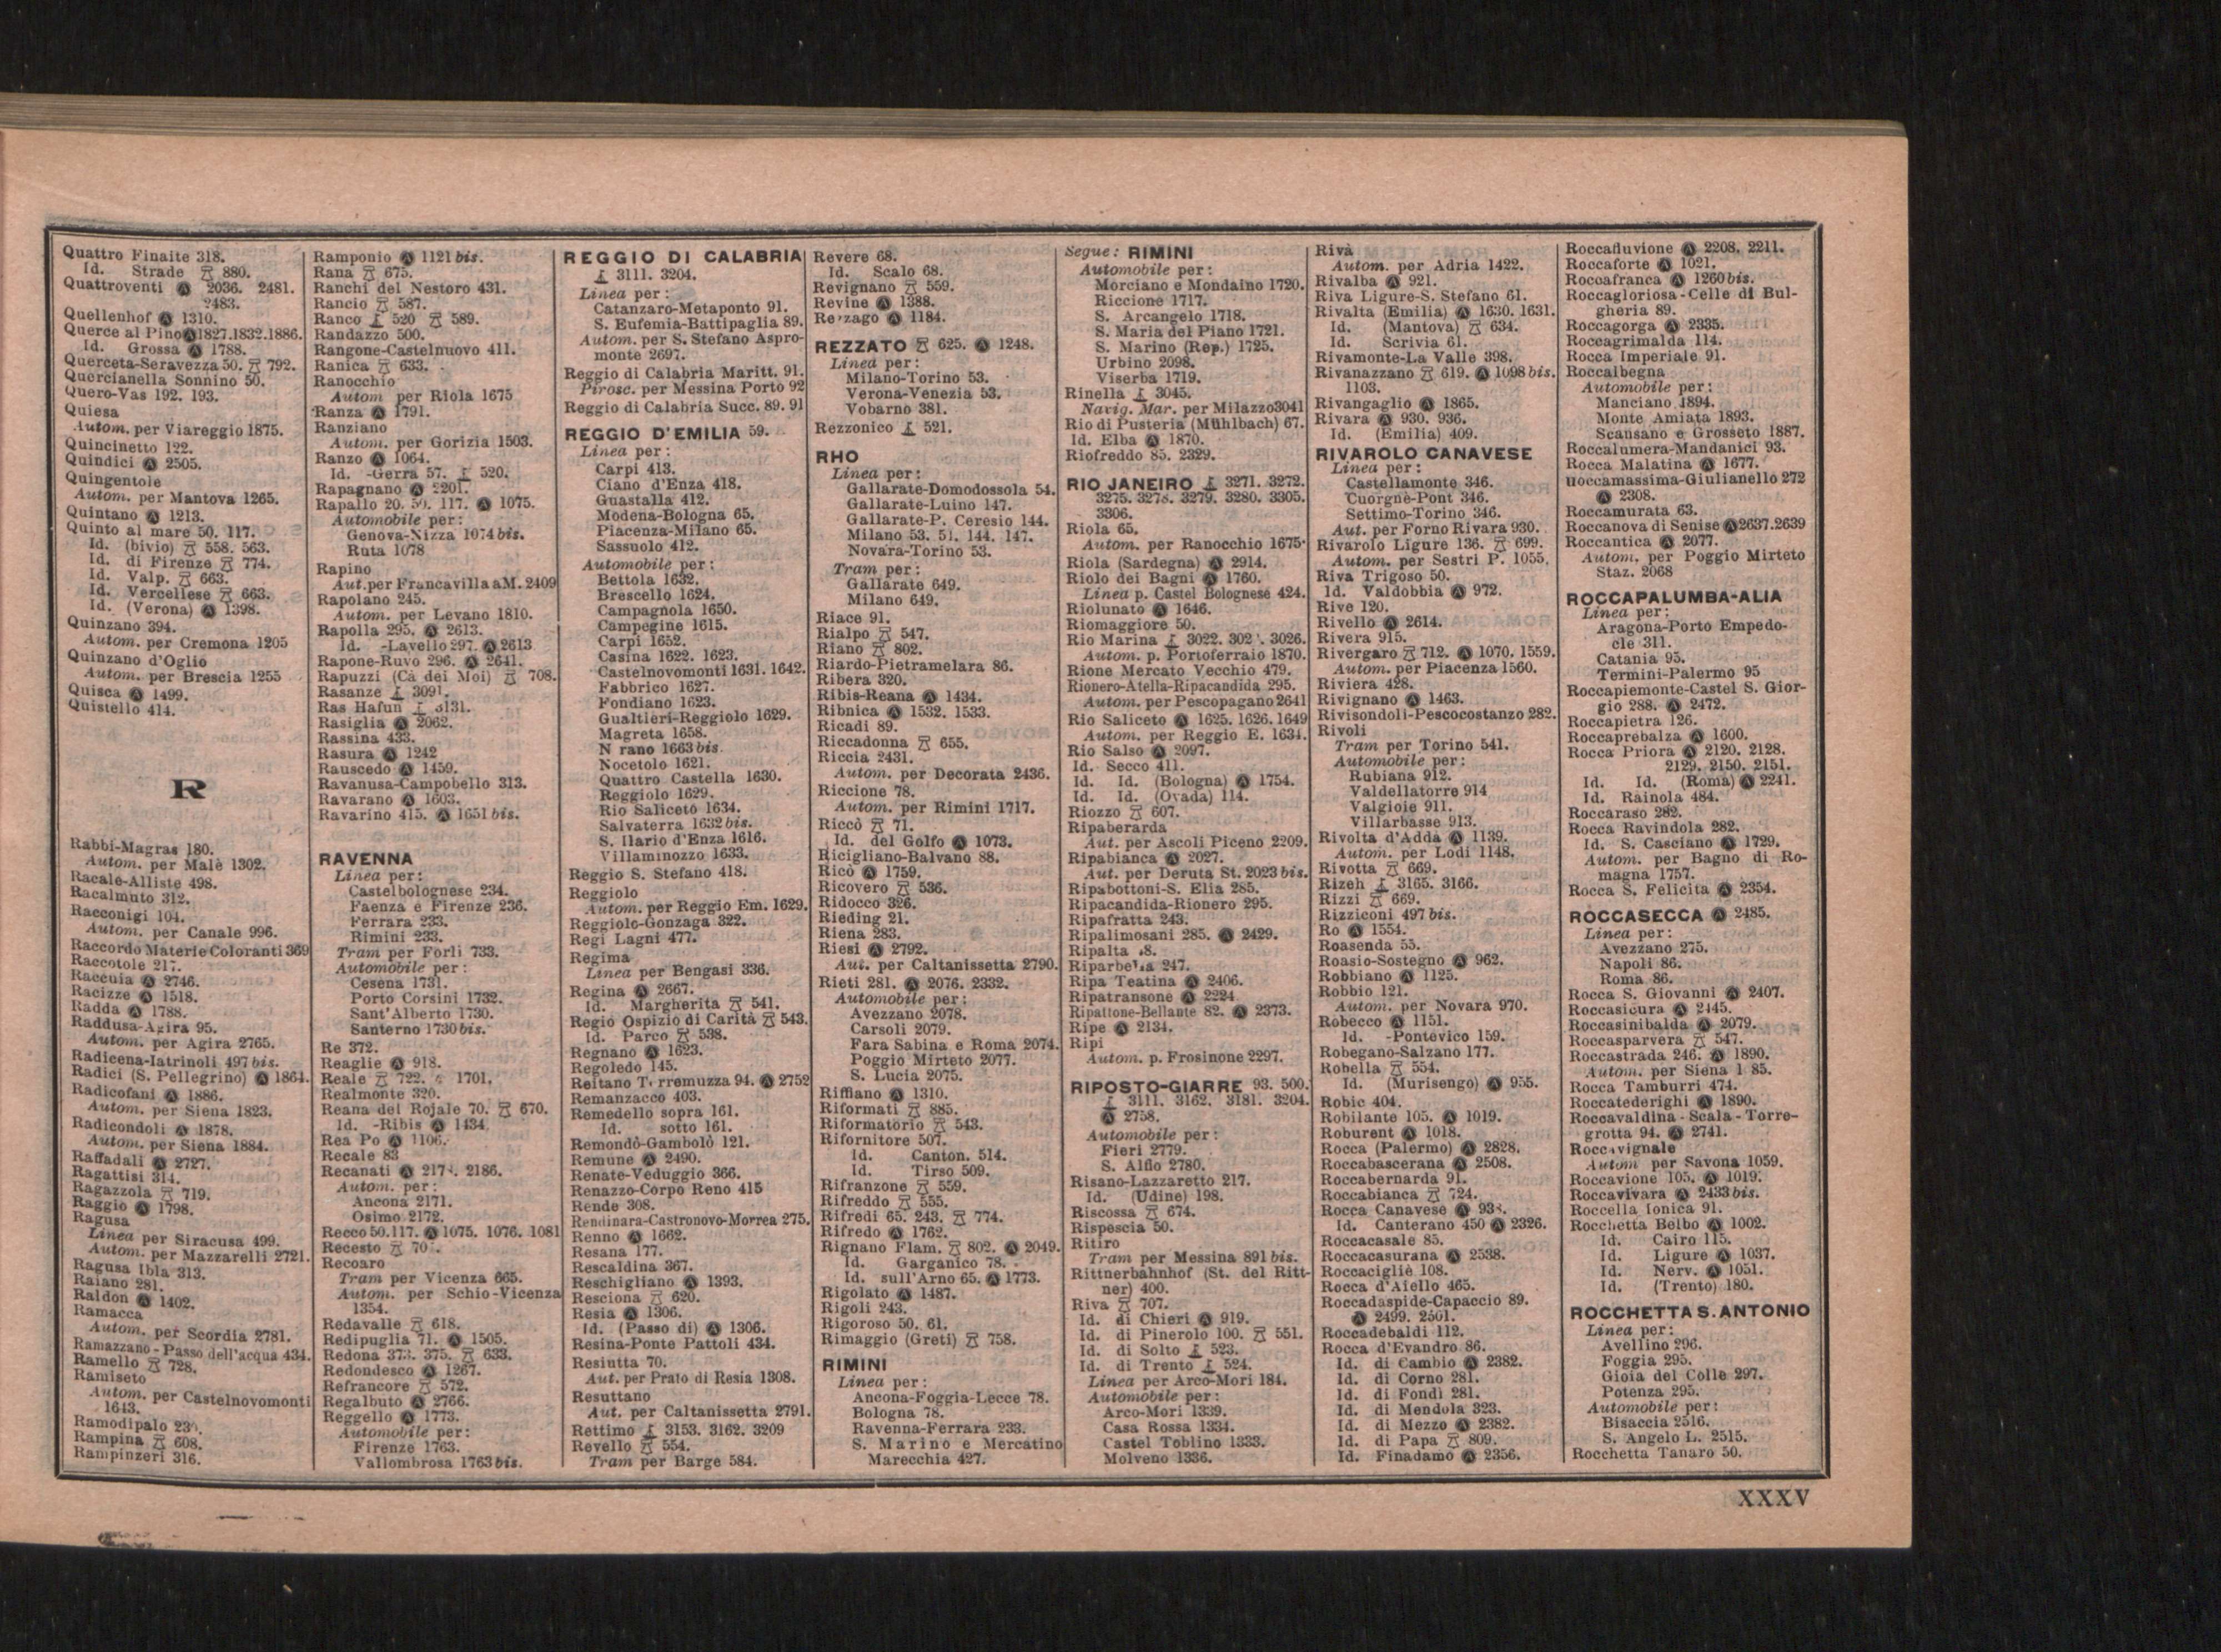 Quattro Finaite 318.
Id. Strade 880.
Quattroventi Ⓐ 2036. 2481.
2483.
Quellenhof Ⓐ 1310.
Querce al Pino Ⓐ 1827.1832.1886.
Id. Grossa Ⓐ 1788.
Querceta-Seravezza 50. 792.
Quercianella Sonnino 50.
Quero-Vas 192. 193.
Quiesa
Autom. per Viareggio 1875.
Quincinetto 122.
Quindici Ⓐ 2505.
Quingentole
Autom. per Mantova 1265.
Quintano Ⓐ 1213.
Quinto al mare 50. 117.
Id. (bivio) 558. 563.
Id. di Firenze 774.
Id. Valp. 663.
Id. Vercellese 663.
Id. (Verona) Ⓐ 1398.
Quinzano 394.
Autom. per Cremona 1205
Quinzano d'Oglio
Autom. per Brescia 1255
Quisca Ⓐ 1499.
Quistello 414.
R
Rabbi-Magras 180.
Autom. per Malè 1302.
Racale-Alliste 498.
Racalmuto 312.
Racconigi 104.
Autom. per Canale 996.
Raccordo Materie Coloranti 369
Raccotole 217.
Raccuia Ⓐ 2746.
Racizze Ⓐ 1518.
Radda Ⓐ 1788.
Raddusa-Agira 95.
Autom. per Agira 2765.
Radicena-Iatrinoli 497 bis.
Radici (S. Pellegrino) Ⓐ 1864.
Radicofani Ⓐ 1886.
Autom. per Siena 1823.
Radicondoli Ⓐ 1878.
Autom. per Siena 1884.
Raffadali Ⓐ 2727.
Ragattisi 314.
Ragazzola 719.
Raggio Ⓐ 1798.
Ragusa
Linea per Siracusa 499.
Autom. per Mazzarelli 2721.
Ragusa Ibla 313.
Raiano 281.
Raldon Ⓐ 1402.
Ramacca
Autom. per Scordia 2781.
Ramazzano - Passo dell'acqua 434.
Ramello 728.
Ramiseto
Autom. per Castelnovomonti
1643.
Ramodipalo
Rampina 608.
Rampinzeri 316.
Ramponio Ⓐ 1121 bis.
Rana 675.
Ranchi del Nestoro 431.
Rancio 587.
Ranco 520 589.
Randazzo 500.
Rangone-Castelnuovo 411.
Ranica 633.
Ranocchio
Autom per Riola 1675
Ranza Ⓐ 1791.
Ranziano
Autom. per Gorizia 1503.
Ranzo Ⓐ 1064.
Id. -Gerra 57. 520.
Rapagnano Ⓐ 2201.
Rapallo 20. 50. 117. Ⓐ 1075.
Automobile per:
Genova-Nizza 1074 bis.
Ruta 1078
Rapino
Aut. per Francavilla a M. 2409
Rapolano 245.
Autom. per Levano 1810.
Rapolla 295. Ⓐ 2613.
Id. -Lavello 297. Ⓐ 2613
Rapone-Ruvo 296. Ⓐ 2641.
Rapuzzi (Cà dei Moi) 708.
Rasanze 3091.
Ras Hafun 3131.
Rasiglia Ⓐ 2062.
Rassina 433.
Rasura Ⓐ 1242
Rauscedo Ⓐ 1459.
Ravanusa-Campobello 313.
Ravarano Ⓐ 1603.
Ravarino 415. Ⓐ 1651 bis.
RAVENNA
Linea per:
Castelbolognese 234.
Faenza e Firenze 236.
Ferrara 233.
Rimini 233.
Tram per Forlì 733.
Automobile per:
Cesena 1731.
Porto Corsini 1732.
Sant'Alberto 1730.
Santerno 1730 bis.
Re 372.
Reaglie Ⓐ 918.
Reale 722. 1701.
Realmonte 320.
Reana del Rojale 70. 670.
Id. -Ribis Ⓐ 1434
Rea Po Ⓐ 1106.
Recale 83
Recanati Ⓐ 2186.
Autom. per:
Ancona 2171.
Osimo 2172.
Recco 50.117. Ⓐ 1075. 1076. 1081
Recesto
Recoaro
Tram per Vicenza 665.
Autom. per Schio-Vicenza
1354.
Redavalle 618.
Redipuglia 71. Ⓐ 1505.
Redona 373. 375. 633.
Redondesco Ⓐ 1267.
Refrancore 572.
Regalbuto Ⓐ 2766.
Reggello Ⓐ 1773.
Automobile per:
Firenze 1763.
Vallombrosa 1763 bis.
REGGIO DI CALABRIA
3111. 3204.
Linea per:
Catanzaro-Metaponto 91.
S. Eufemia-Battipaglia 89.
Autom. per S. Stefano Aspro-
monte 2697.
Reggio di Calabria Maritt. 91.
Pirosc. per Messina Porto 92
Reggio di Calabria Succ. 89. 91
REGGIO D'EMILIA 59.
Linea per:
Carpi 413.
Ciano d'Enza 418.
Guastalla 412.
Modena-Bologna 65.
Piacenza-Milano 65.
Sassuolo 412.
Automobile per:
Bettola 1632.
Brescello 1624.
Campagnola 1650.
Campegine 1615.
Carpi 1652.
Casina 1622. 1623.
Castelnovomonti 1631. 1642.
Fabbrico 1627.
Fondiano 1623.
Gualtieri-Reggiolo 1629.
Magreta 1658.
N rano 1663 bis.
Nocetolo 1621.
Quattro Castella 1630.
Reggiolo 1629.
Rio Saliceto 1634.
Salvaterra 1632 bis.
S. Ilario d'Enza 1616.
Villaminozzo 1633.
Reggio S. Stefano 418.
Reggiolo
Autom. per Reggio Em. 1629.
Reggiolo-Gonzaga 322.
Regi Lagni 477.
Regima
Linea per Bengasi 336.
Regina Ⓐ 2667.
Id. Margherita 541.
Regio Ospizio di Carità 543.
Id. Parco 538.
Regnano Ⓐ 1623.
Regoledo 145.
Reitano T rremuzza 94. Ⓐ 2752
Remanzacco 403.
Remedello sopra 161.
Id. sotto 161.
Remondò-Gambolò 121.
Remune Ⓐ 2490.
Renate-Veduggio 366.
Renazzo-Corpo Reno 415
Rende 308.
Rendinara-Castronovo-Morrea 275.
Renno Ⓐ 1662.
Resana 177.
Rescaldina 367.
Reschigliano Ⓐ 1393.
Resciona 620.
Resia Ⓐ 1306.
Id. (Passo di) Ⓐ 1306.
Resina-Ponte Pattoli 434.
Resiutta 70.
Aut. per Prato di Resia 1308.
Resuttano
Aut. per Caltanissetta 2791.
Rettimo 3153. 3162. 3209
Revello 554.
Tram per Barge 584.
Revere 68.
Id. Scalo 68.
Revignano 559.
Revine Ⓐ 1388.
Rezzago Ⓐ 1184.
REZZATO 625. Ⓐ 1248.
Linea per:
Milano-Torino 53.
Verona-Venezia 53.
Vobarno 381.
Rezzonico 521.
RHO
Linea per:
Gallarate-Domodossola 54.
Gallarate-Luino 147.
Gallarate-P. Ceresio 144.
Milano 53. 51. 144. 147.
Novara-Torino 53.
Tram per:
Gallarate 649.
Milano 649.
Riace 91.
Rialpo 547.
Riano 802.
Riardo-Pietramelara 86.
Ribera 320.
Ribis-Reana Ⓐ 1434.
Ribnica Ⓐ 1532. 1533.
Ricadi 89.
Riccadonna 655.
Riccia 2431.
Autom. per Decorata 2436.
Riccione 78.
Autom. per Rimini 1717.
Riccò 71.
Id. del Golfo Ⓐ 1073.
Ricigliano-Balvano 88.
Ricò Ⓐ 1759.
Ricovero 536.
Ridocco 326.
Rieding 21.
Riena 283.
Riesi Ⓐ 2792.
Aut. per Caltanissetta 2790.
Rieti 281. Ⓐ 2076. 2332.
Automobile per:
Avezzano 2078.
Carsoli 2079.
Fara Sabina e Roma 2074.
Poggio Mirteto 2077.
S. Lucia 2075.
Riffiano Ⓐ 1310.
Riformati 885.
Riformatorio 543.
Rifornitore 507.
Id. Canton. 514.
Id. Tirso 509.
Rifranzone 559.
Rifreddo 555.
Rifredi 65. 243. 774.
Rifredo Ⓐ 1762.
Rignano Flam. 802. Ⓐ 2049.
Id. Garganico 78.
Id. sull'Arno 65. Ⓐ 1773.
Rigolato Ⓐ 1487.
Rigoli 243.
Rigoroso 50. 61.
Rimaggio (Greti) 758.
RIMINI
Linea per:
Ancona-Foggia-Lecce 78.
Bologna 78.
Ravenna-Ferrara 233.
S. Marino e Mercatino
Marecchia 427.
Segue: RIMINI
Automobile per:
Morciano e Mondaino 1720.
Riccione 1717.
S. Arcangelo 1718.
S. Maria del Piano 1721.
S. Marino (Rep.) 1725.
Urbino 2098.
Viserba 1719.
Rinella 3045.
Navig. Mar. per Milazzo 3041
Rio di Pusteria (Mühlbach) 67.
Id. Elba Ⓐ 1870.
Riofreddo 85. 2329.
RIO JANEIRO 3271. 3272.
3275. 3278. 3279. 3280. 3305.
3306.
Riola 65.
Autom. per Ranocchio 1675
Riola (Sardegna) Ⓐ 2914.
Riolo dei Bagni Ⓐ 1760.
Linea p. Castel Bolognese 424.
Riolunato Ⓐ 1646.
Riomaggiore 50.
Rio Marina 3022. 302 . 3026.
Autom. p. Portoferraio 1870.
Rione Mercato Vecchio 479.
Rionero-Atella-Ripacandida 295.
Autom. per Pescopagano 2641
Rio Saliceto Ⓐ 1625. 1626. 1649
Autom. per Reggio E. 1634.
Rio Salso Ⓐ 2097.
Id. Secco 411.
Id. Id. (Bologna) Ⓐ 1754.
Id. Id. (Ovada) 114.
Riozzo 607.
Ripaberarda
Aut. per Ascoli Piceno 2209.
Ripabianca Ⓐ 2027.
Aut. per Deruta St. 2023 bis.
Ripabottoni-S. Elia 285.
Ripacandida-Rionero 295.
Ripafratta 243.
Ripalimosani 285. Ⓐ 2429.
Ripalta
Riparbella 247.
Ripa Teatina Ⓐ 2406.
Ripatransone Ⓐ 2224
Ripattone-Bellante 82. Ⓐ 2373.
Ripe Ⓐ 2134.
Ripi
Autom. p. Frosinone 2297.
RIPOSTO-GIARRE 93. 500.
3111. 3162. 3181. 3204.
Ⓐ 2758.
Automobile per:
Fieri 2779.
S. Alfio 2780.
Risano-Lazzaretto 217.
Id. (Udine) 198.
Riscossa 674.
Rispescia 50.
Ritiro
Tram per Messina 891 bis.
Rittnerbahnhof (St. del Ritt-
ner) 400.
Riva 707.
Id. di Chieri Ⓐ 919.
Id. di Pinerolo 100. 551.
Id. di Solto 523.
Id. di Trento 524.
Linea per Arco-Mori 184.
Automobile per:
Arco-Mori 1339.
Casa Rossa 1334.
Castel Toblino 1333.
Molveno 1336.
Rivà
Autom. per Adria 1422.
Rivalba Ⓐ 921.
Riva Ligure-S. Stefano 61.
Rivalta (Emilia) Ⓐ 1630. 1631.
Id. (Mantova) 634.
Id. Scrivia 61.
Rivamonte-La Valle 398.
Rivanazzano 619. Ⓐ 1098 bis.
1103.
Rivangaglio Ⓐ 1865.
Rivara Ⓐ 930. 936.
Id. (Emilia) 409.
RIVAROLO CANAVESE
Linea per:
Castellamonte 346.
Cuorgnè-Pont 346.
Settimo-Torino 346.
Aut. per Forno Rivara 930.
Rivarolo Ligure 136. 699.
Autom. per Sestri P. 1055.
Riva Trigoso 50.
Id. Valdobbia Ⓐ 972.
Rive 120.
Rivello Ⓐ 2614.
Rivera 915.
Rivergaro 712. Ⓐ 1070. 1559.
Autom. per Piacenza 1560.
Riviera 428.
Rivignano Ⓐ 1463.
Rivisondoli-Pescocostanzo 282.
Rivoli
Tram per Torino 541.
Automobile per:
Rubiana 912.
Valdellatorre 914
Valgioie 911.
Villarbasse 913.
Rivolta d'Adda Ⓐ 1139.
Autom. per Lodi 1148.
Rivotta 669.
Rizeh 3165. 3166.
Rizzi 669.
Rizziconi 497 bis.
Ro Ⓐ 1554.
Roasenda 55.
Roasio-Sostegno Ⓐ 962.
Robbiano Ⓐ 1125.
Robbio 121.
Autom. per Novara 970.
Robecco Ⓐ 1151.
Id. -Pontevico 159.
Robegano-Salzano 177.
Robella 554.
Id. (Murisengo) Ⓐ 955.
Robic 404.
Robilante 105. Ⓐ 1019.
Roburent Ⓐ 1018.
Rocca (Palermo) Ⓐ 2828.
Roccabascerana Ⓐ 2508.
Roccabernarda 91.
Roccabianca 724.
Rocca Canavese Ⓐ
Id. Canterano 450 Ⓐ 2326.
Roccacasale 85.
Roccacasurana Ⓐ 2538.
Roccacigliè 108.
Rocca d'Aiello 465.
Roccadaspide-Capaccio 89.
Ⓐ 2499. 2501.
Roccadebaldi 112.
Rocca d'Evandro 86.
Id. di Cambio Ⓐ 2382.
Id. di Corno 281.
Id. di Fondi 281.
Id. di Mendola 323.
Id. di Mezzo Ⓐ 2382.
Id. di Papa 809.
Id. Finadamo Ⓐ 2356.
Roccafluvione Ⓐ 2208. 2211.
Roccaforte Ⓐ 1021.
Roccafranca Ⓐ 1260 bis.
Roccagloriosa-Celle di Bul-
gheria 89.
Roccagorga Ⓐ 2335.
Roccagrimalda 114.
Rocca Imperiale 91.
Roccalbegna
Automobile per:
Manciano 1894.
Monte Amiata 1893.
Scansano e Grosseto 1887.
Roccalumera-Mandanici 93.
Rocca Malatina Ⓐ 1677.
Roccamassima-Giulianello 272
Ⓐ 2308.
Roccamurata 63.
Roccanova di Senise Ⓐ 2637.2639
Roccantica Ⓐ 2077.
Autom. per Poggio Mirteto
Staz. 2068
ROCCAPALUMBA-ALIA
Linea per:
Aragona-Porto Empedo-
cle 311.
Catania 95.
Termini-Palermo 95
Roccapiemonte-Castel S. Gior-
gio 288. Ⓐ 2472.
Roccapietra 126.
Roccaprebalza Ⓐ 1600.
Rocca Priora Ⓐ 2120. 2128.
2129. 2150. 2151.
Id. Id. (Roma) Ⓐ 2241.
Id. Rainola 484.
Roccaraso 282.
Rocca Ravindola 282.
Id. S. Casciano Ⓐ 1729.
Autom. per Bagno di Ro-
magna 1757.
Rocca S. Felicita Ⓐ 2354.
ROCCASECCA Ⓐ 2485.
Linea per:
Avezzano 275.
Napoli 86.
Roma 86.
Rocca S. Giovanni Ⓐ 2407.
Roccasicura Ⓐ 2445.
Roccasinibalda Ⓐ 2079.
Roccasparvera 547.
Roccastrada 246. Ⓐ 1890.
Autom. per Siena 1 85.
Rocca Tamburri 474.
Roccatederighi Ⓐ 1890.
Roccavaldina - Scala - Torre-
grotta 94. Ⓐ 2741.
Roccavignale
Autom per Savona 1059.
Roccavione 105. Ⓐ 1019.
Roccavivara Ⓐ 2433 bis.
Roccella Ionica 91.
Rocchetta Belbo Ⓐ 1002.
Id. Cairo 115.
Id. Ligure Ⓐ 1037.
Id. Nerv. Ⓐ 1051.
Id. (Trento) 180.
ROCCHETTA S. ANTONIO
Linea per:
Avellino 296.
Foggia 295.
Gioia del Colle 297.
Potenza 295.
Automobile per:
Bisaccia 2516.
S. Angelo L. 2515.
Rocchetta Tanaro 50.
XXXV